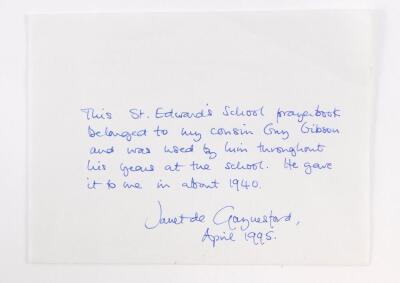 This St. Edward's School prayerbook
belonged to my cousin Guy Gibson
and was used by him throughout
his years at the school. He gave
it to me in about 1940.
Janet de Gaynesford,
April 1995.